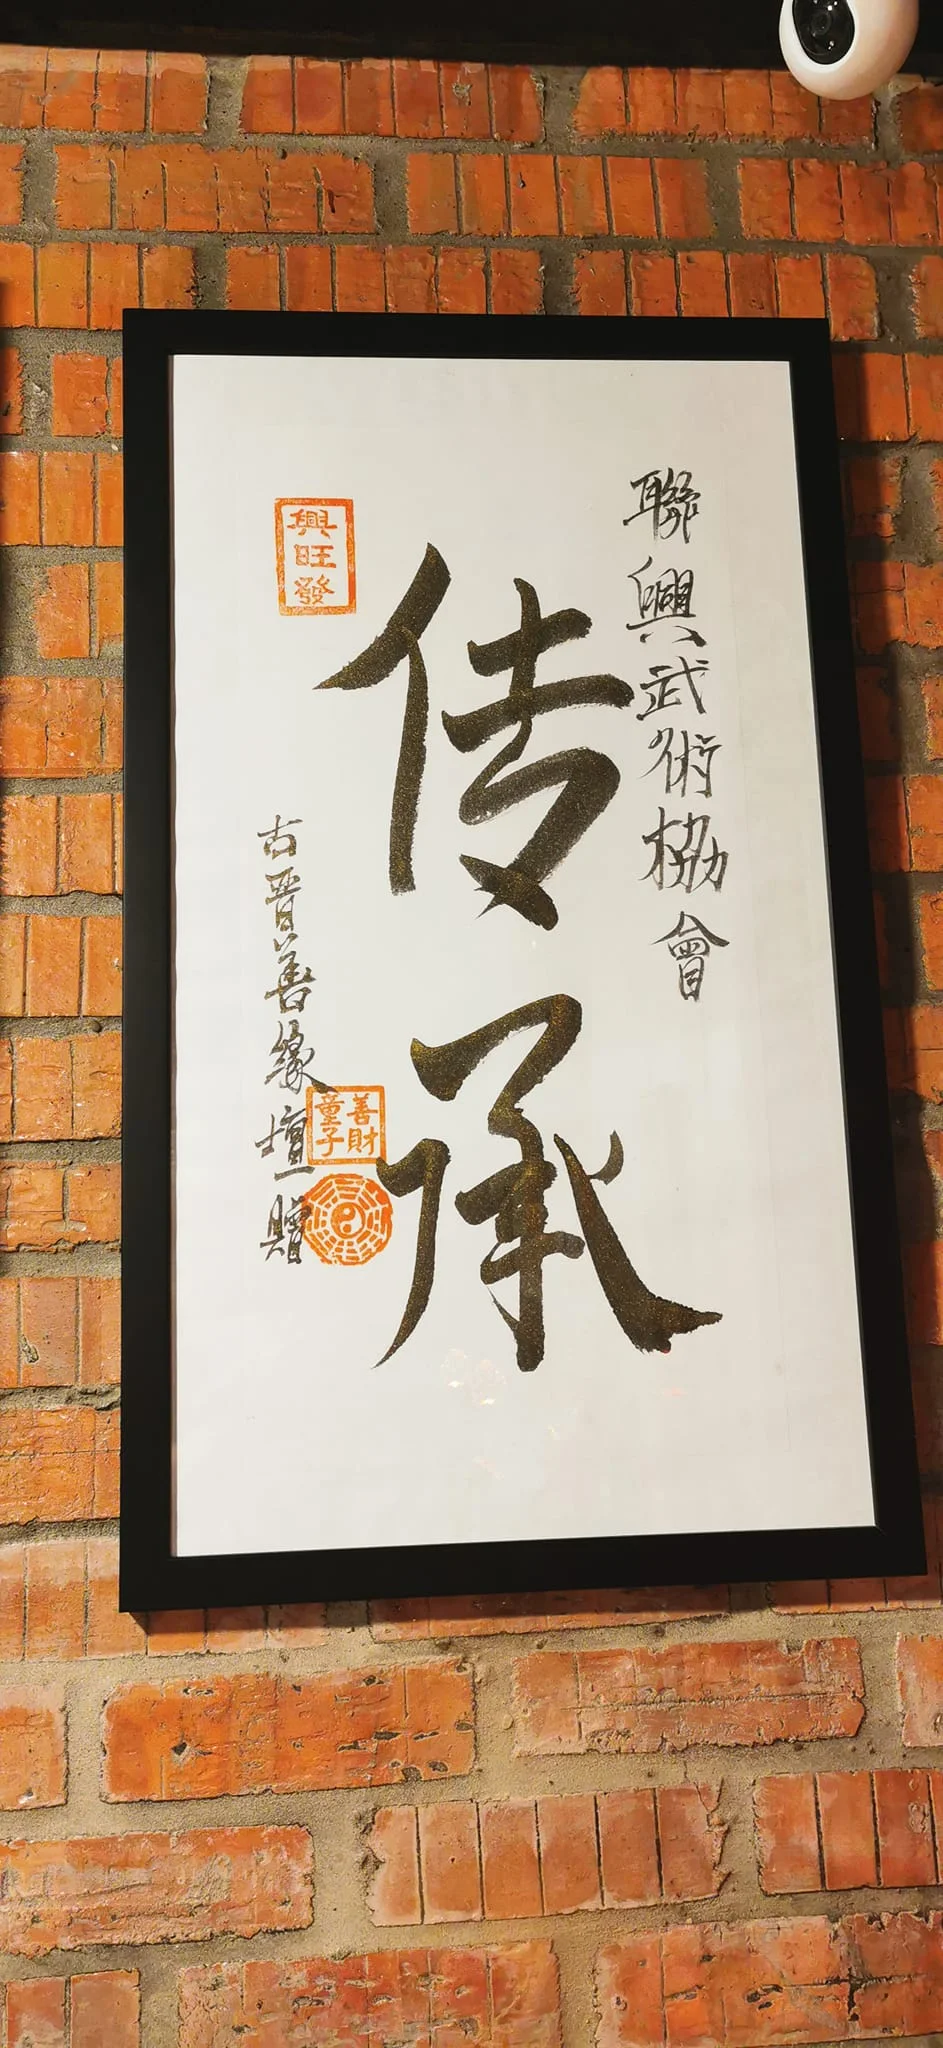 聯興武術協會
传承
興旺發
古晋善缘壇
贈
善財
童子